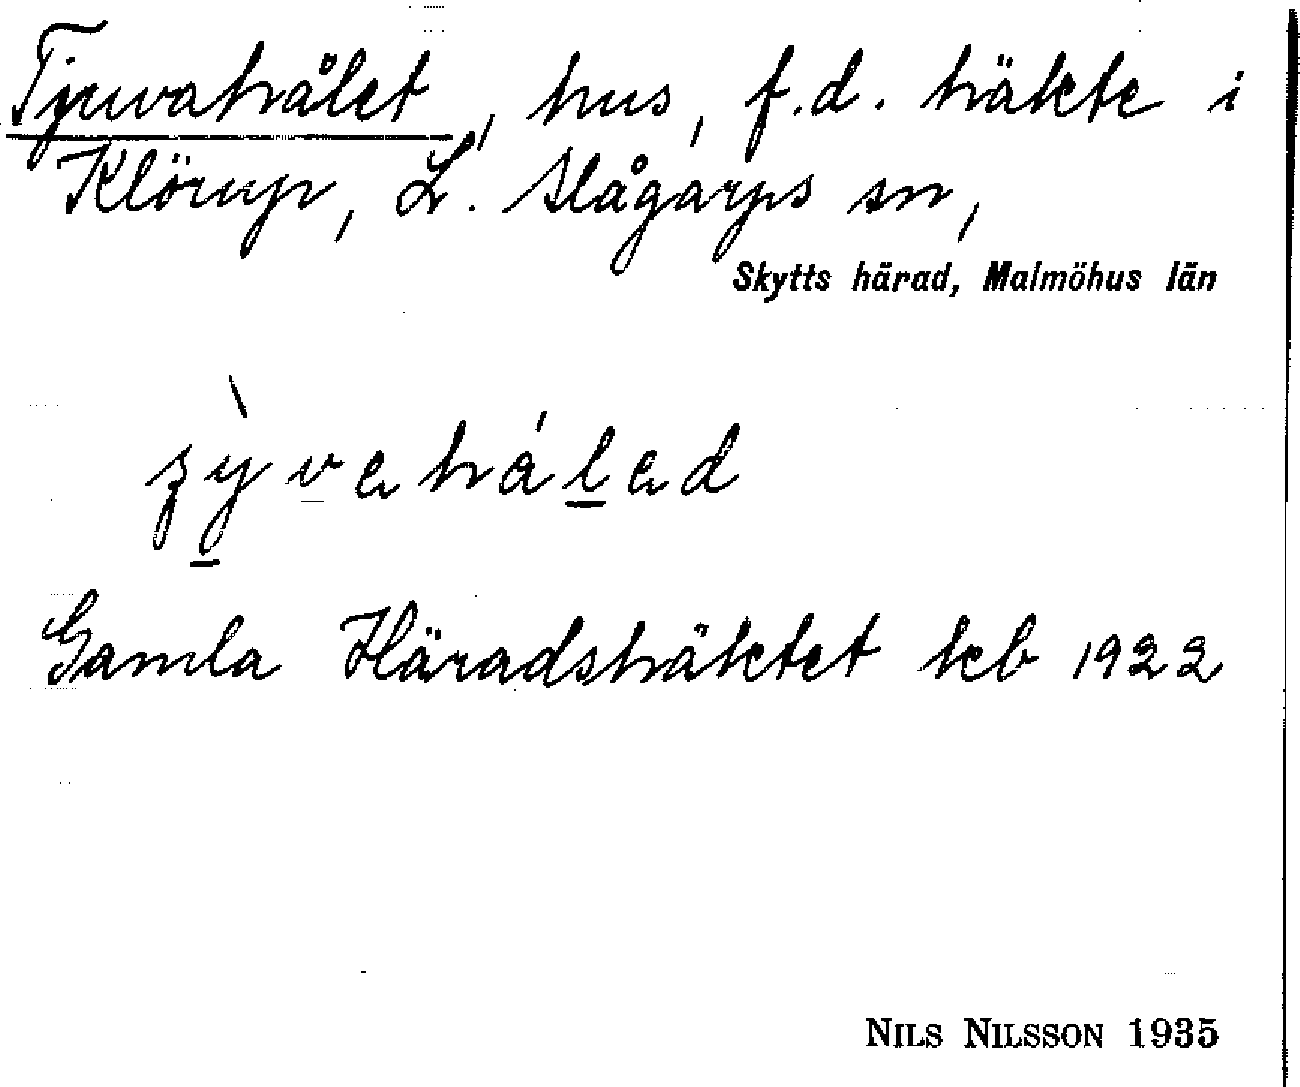 Tjuvahålet, hus, f.d. häkte i
Klörup, L. Slågarps sn,
Skytts härad, Malmöhus län
Gamla Häradshäktet kb 1922
NILS NILSSON 1935